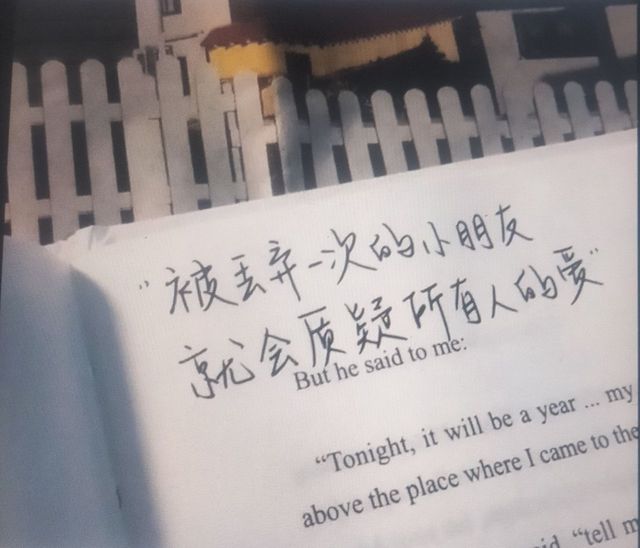 “被丢弃一次的小朋友
就会质疑所有人的爱”
But he said to me:
“Tonight, it will be a year ... my
above the place where I came to the
“tell m